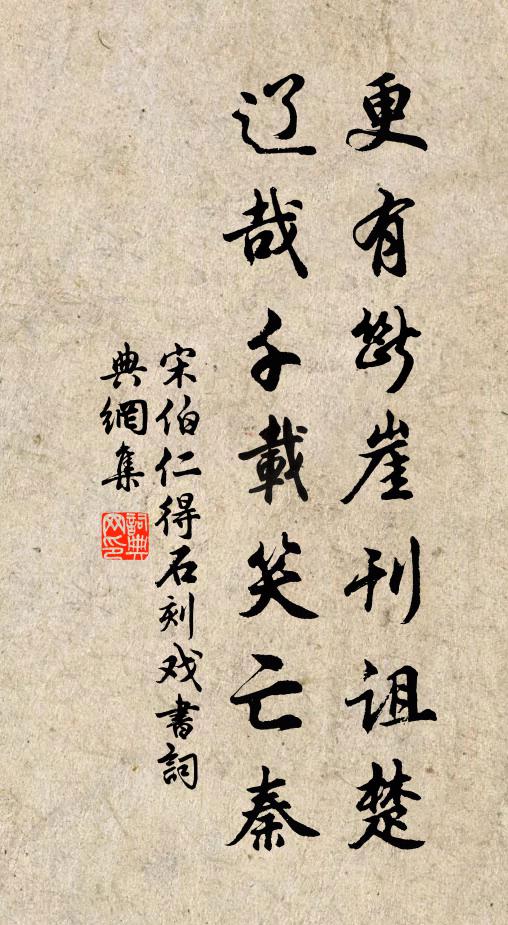 更有断崖刊诅楚
辽哉千載笑亡秦
宋伯仁得石刻戏書詞
典網集
詞典網印